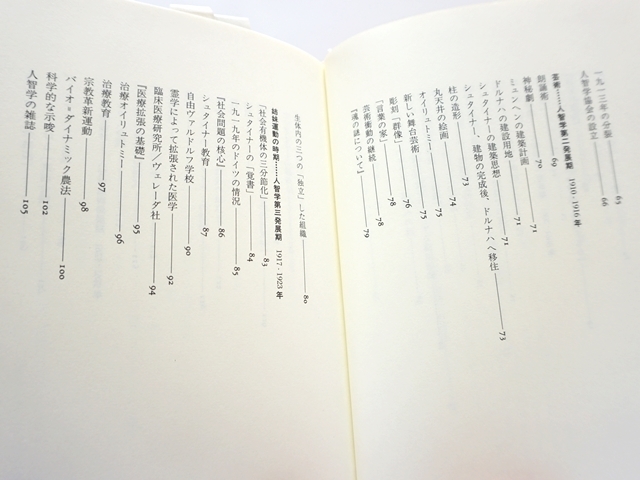 一九一三年の分裂――65
人智学協会の設立――66
芸術……人智学第二発展期 1910-1916年
朗誦術――69
神秘劇――70
ミュンヘンの建築計画――71
ドルナハの建設用地――71
シュタイナーの建築思想
シュタイナー、建物の完成後、ドルナハへ移住――73
柱の造形――73
丸天井の絵画――74
オイリュトミー――75
新しい舞台芸術――75
彫刻「群像」――76
「言葉の家」――78
芸術衝動の継続――78
『魂の謎について』――79
生体内の三つの「独立」した組織――80
姉妹運動の時期……人智学第三発展期 1917-1923年
「社会有機体の三分節化」――83
シュタイナーの「覚書」――84
一九一九年のドイツの情況――85
『社会問題の核心』――86
シュタイナー教育――87
自由ヴァルドルフ学校――90
霊学によって拡張された医学――92
臨床医療研究所／ヴェレーダ社――94
『医療拡張の基礎』――95
治療オイリュトミー――96
治療教育――97
宗教革新運動――98
バイオ=ダイナミック農法――100
科学的な示唆――102
人智学の雑誌――105